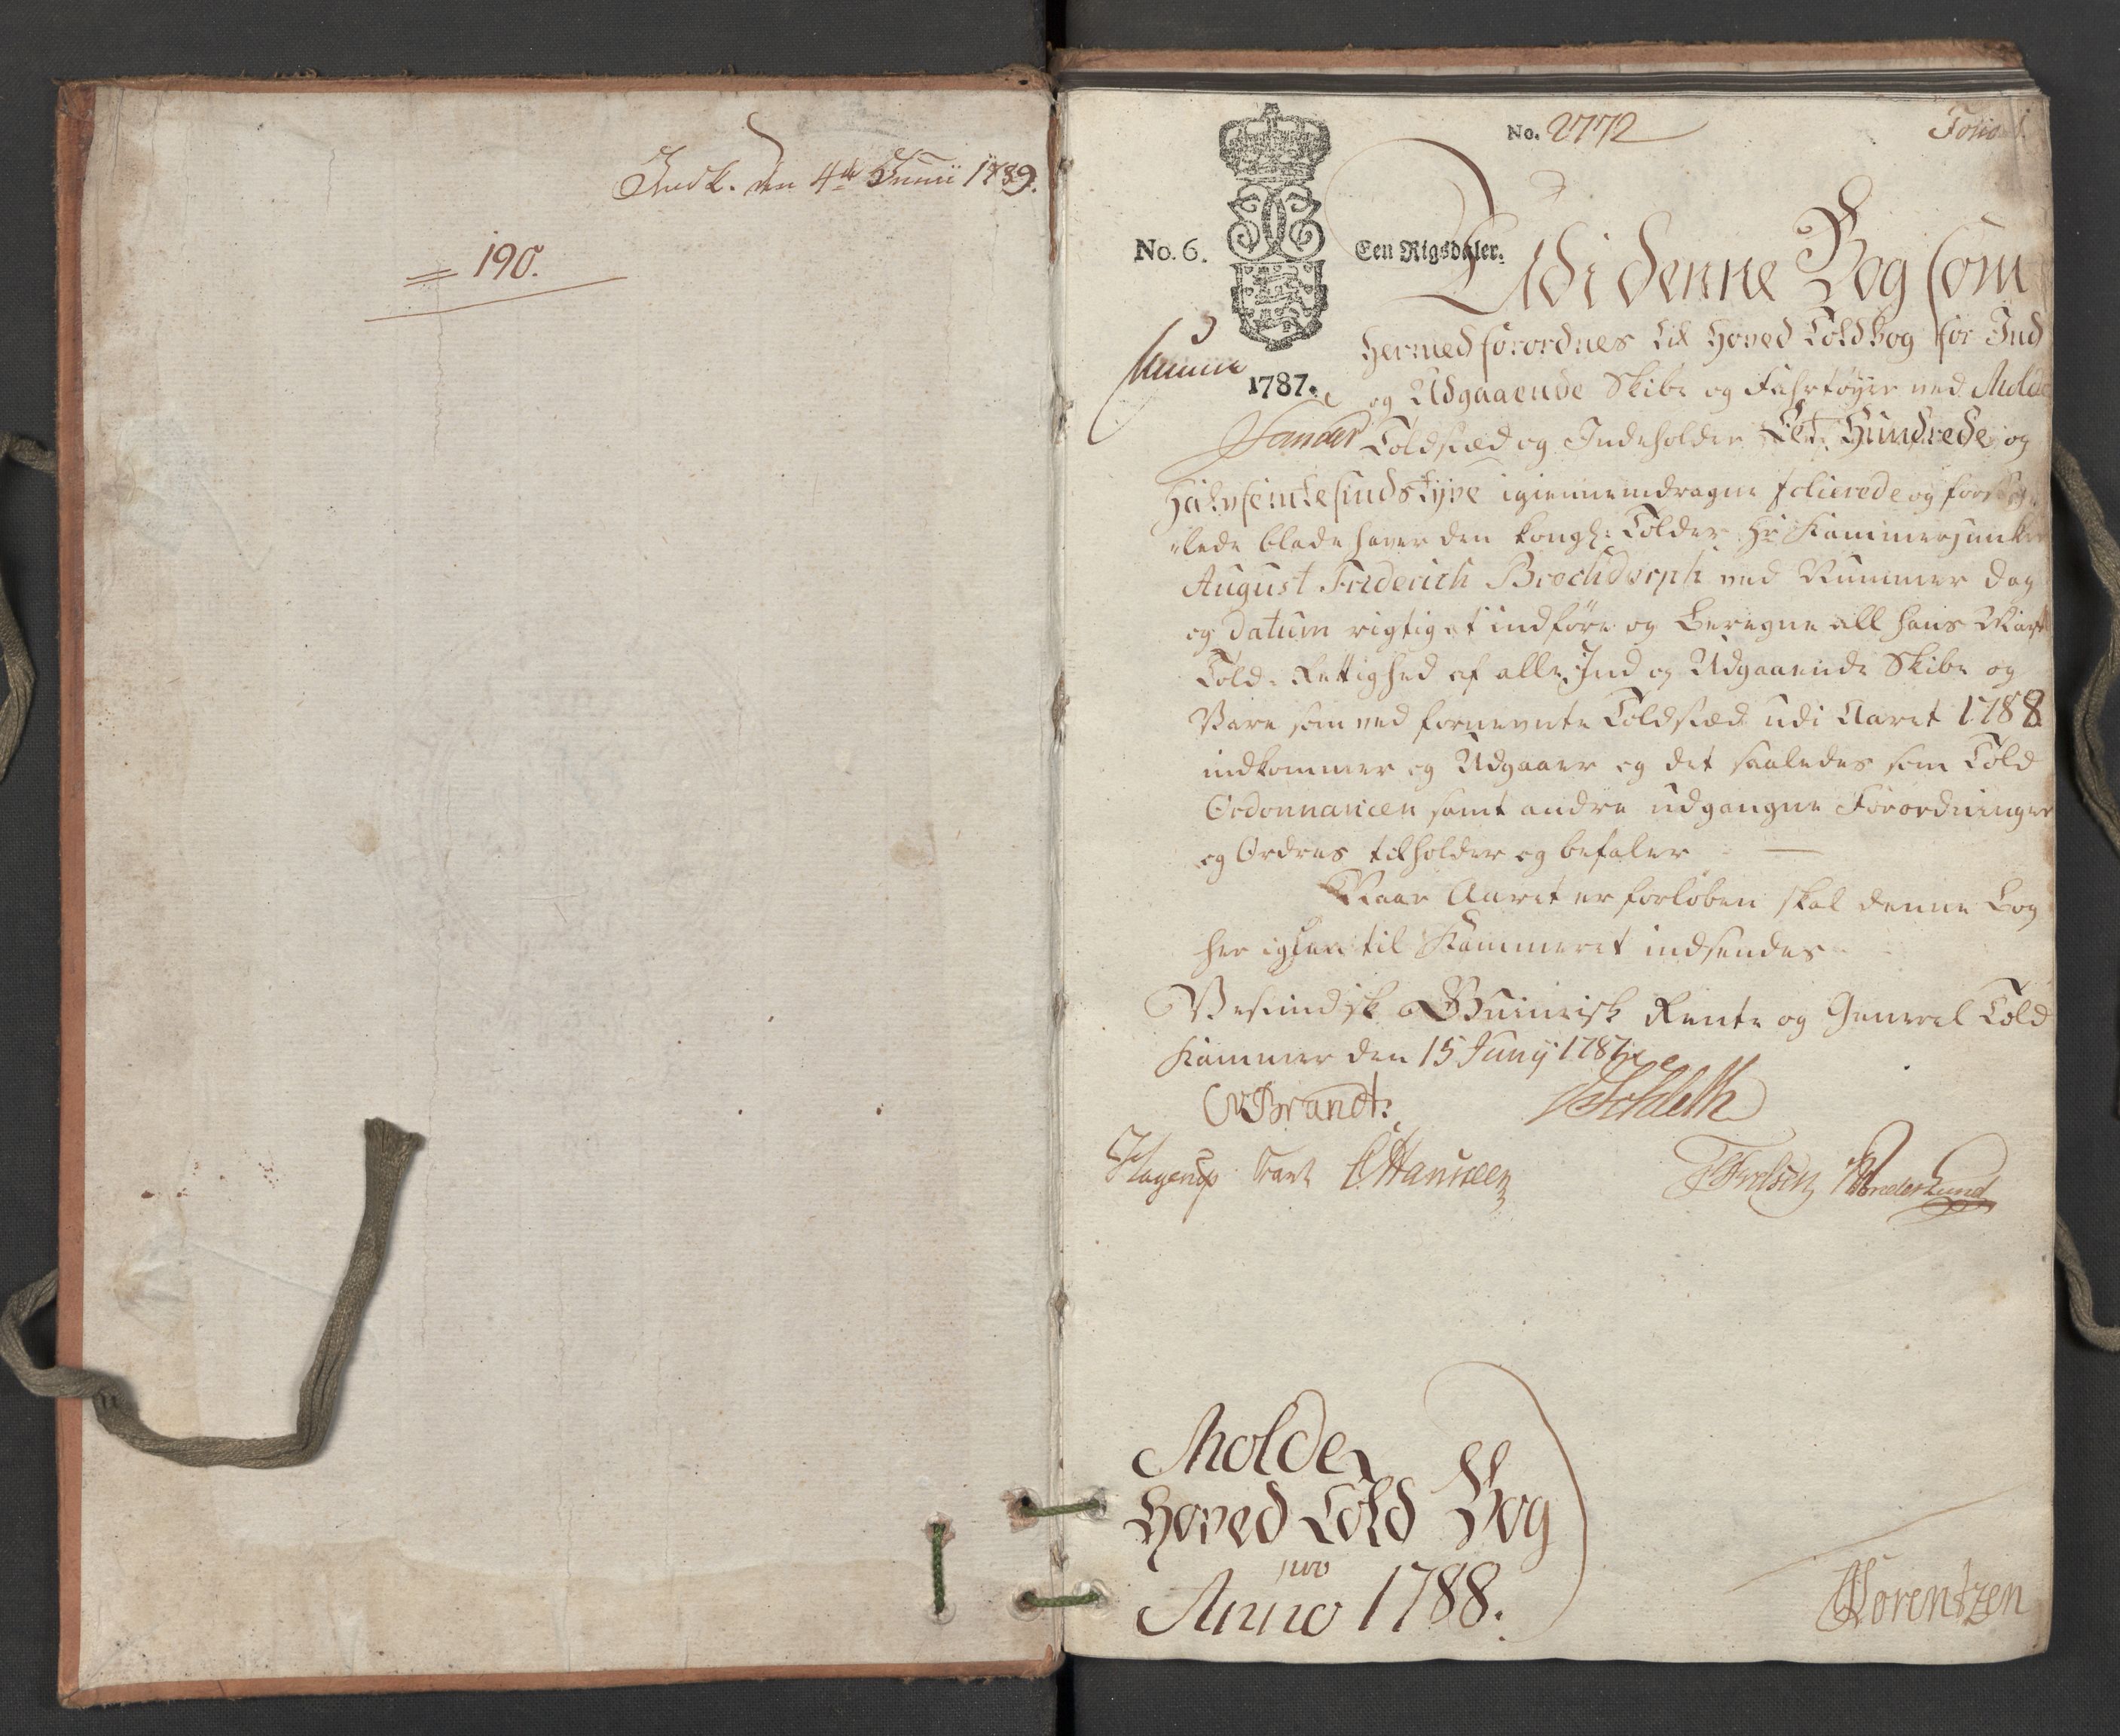 Indk. den 4de Junii 1789.
190.
No. 2772
Folio 1.
No. 6.
Een Rigsdaler.
1787.
Udi denne Bog som
hermed forordnes til Hoved Told Bog for Ind
og Udgaaende Skibe og Fahrtøyer ved Molde
Toldsted og Indeholder Et Hundrede og
Halvfemtesindstyve igiennemdragne folierede og forseig-
lede blade haver den kongl: Tolder Hr Kammerjunker
August Friderich Brochdorph ved Nummer dag
og datum rigtigst indføre og Beregne all hans Mayts
Told-Rettighed af alle Ind og Udgaaende Skibe og
Vare som ved fornevnte Toldsted udi Aaret 1788
indkommer og Udgaaer og det saaledes som Told
Ordonnancen samt andre udgangne Forordninger
og Ordres tilholder og befaler
Naar Aaret er forløben skal denne Bog
her igien til Kammeret indsendes
Vestindisk Guineisk Rente og General Told
Kammer den 15 Junij 1787
CvBrandt.
Hagerup
Molde
Hoved Told Bog
pro
Anno 1788.
Lorentzen